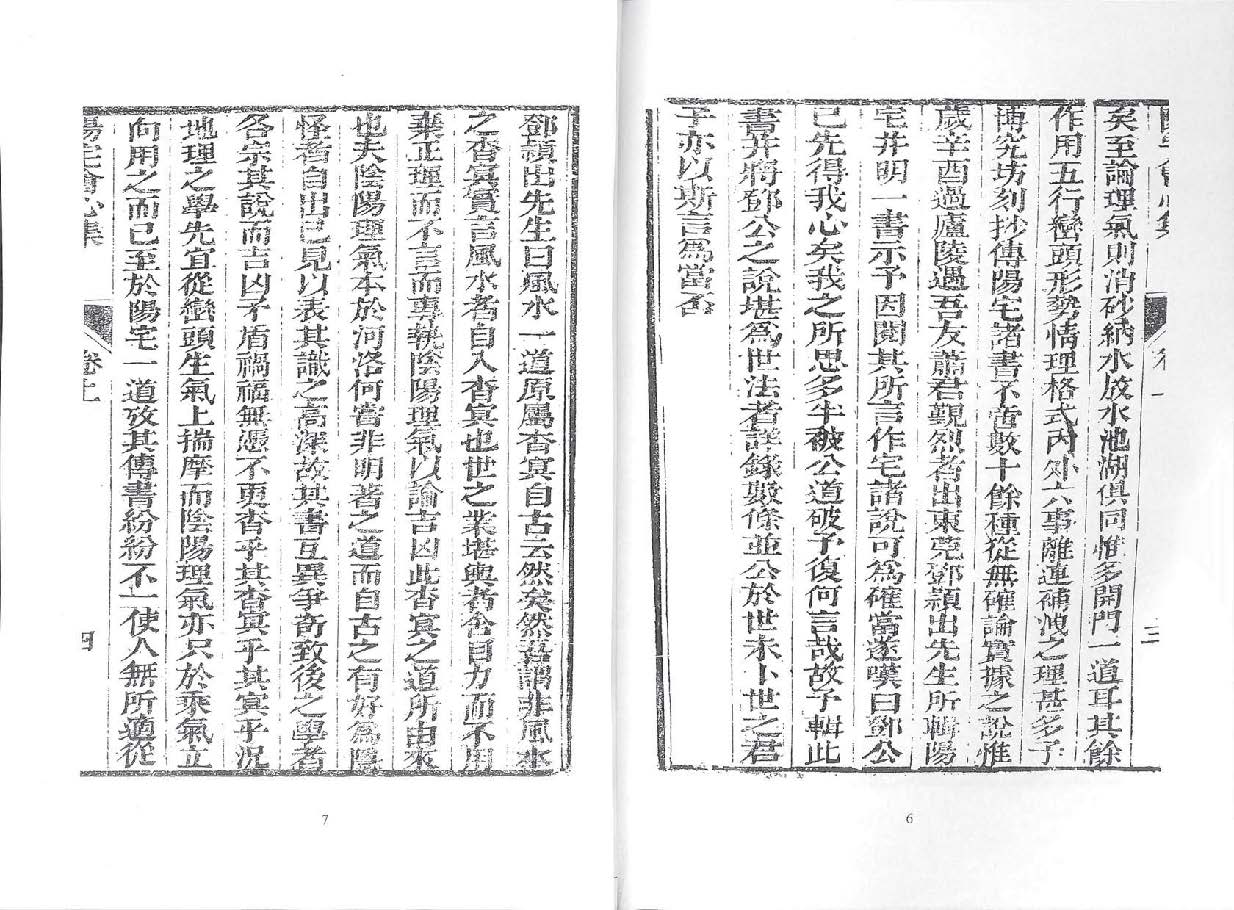 矣至論理氣則消砂納水放水池湖俱同惟多開門一道耳其餘
作用五行巒頭形勢情理格式內外六事離連補洩之理甚多予
博究坊刻抄傳陽宅諸書不啻數十餘種從無確論實據之說惟
歲辛酉過廬陵遇吾友蕭君觀烈者出東莞鄧穎出先生所輯陽
宅井明一書示予因閱其所言作宅諸說可為確當遂嘆曰鄧公
已先得我心矣我之所思多半被公道破予復何言哉故予輯此
書并將鄧公之說堪為世法者詳錄數條並公於世未卜世之君
子亦以斯言為當否
6
鄧穎出先生曰風水一道原屬杳冥自古云然矣然吾謂非風水
之杳冥實言風水者自入杳冥也世之業堪輿者舍目力而不用
棄正理而不言而專執陰陽理氣以論吉凶此杳冥之道所由來
也夫陰陽理氣本於河洛何嘗非明著之道而自古之有好為隱
怪者自出己見以表其識之高深故其書互異爭奇致後之學者
各宗其說而吉凶矛盾禍福無憑不更杳乎其杳冥乎其冥乎況
地理之學先宜從巒頭生氣上揣摩而陰陽理氣亦只於乘氣立
向用之而已至於陽宅一道攷其傳書紛紛不一使人無所適從
陽宅會心集
卷上
四
7